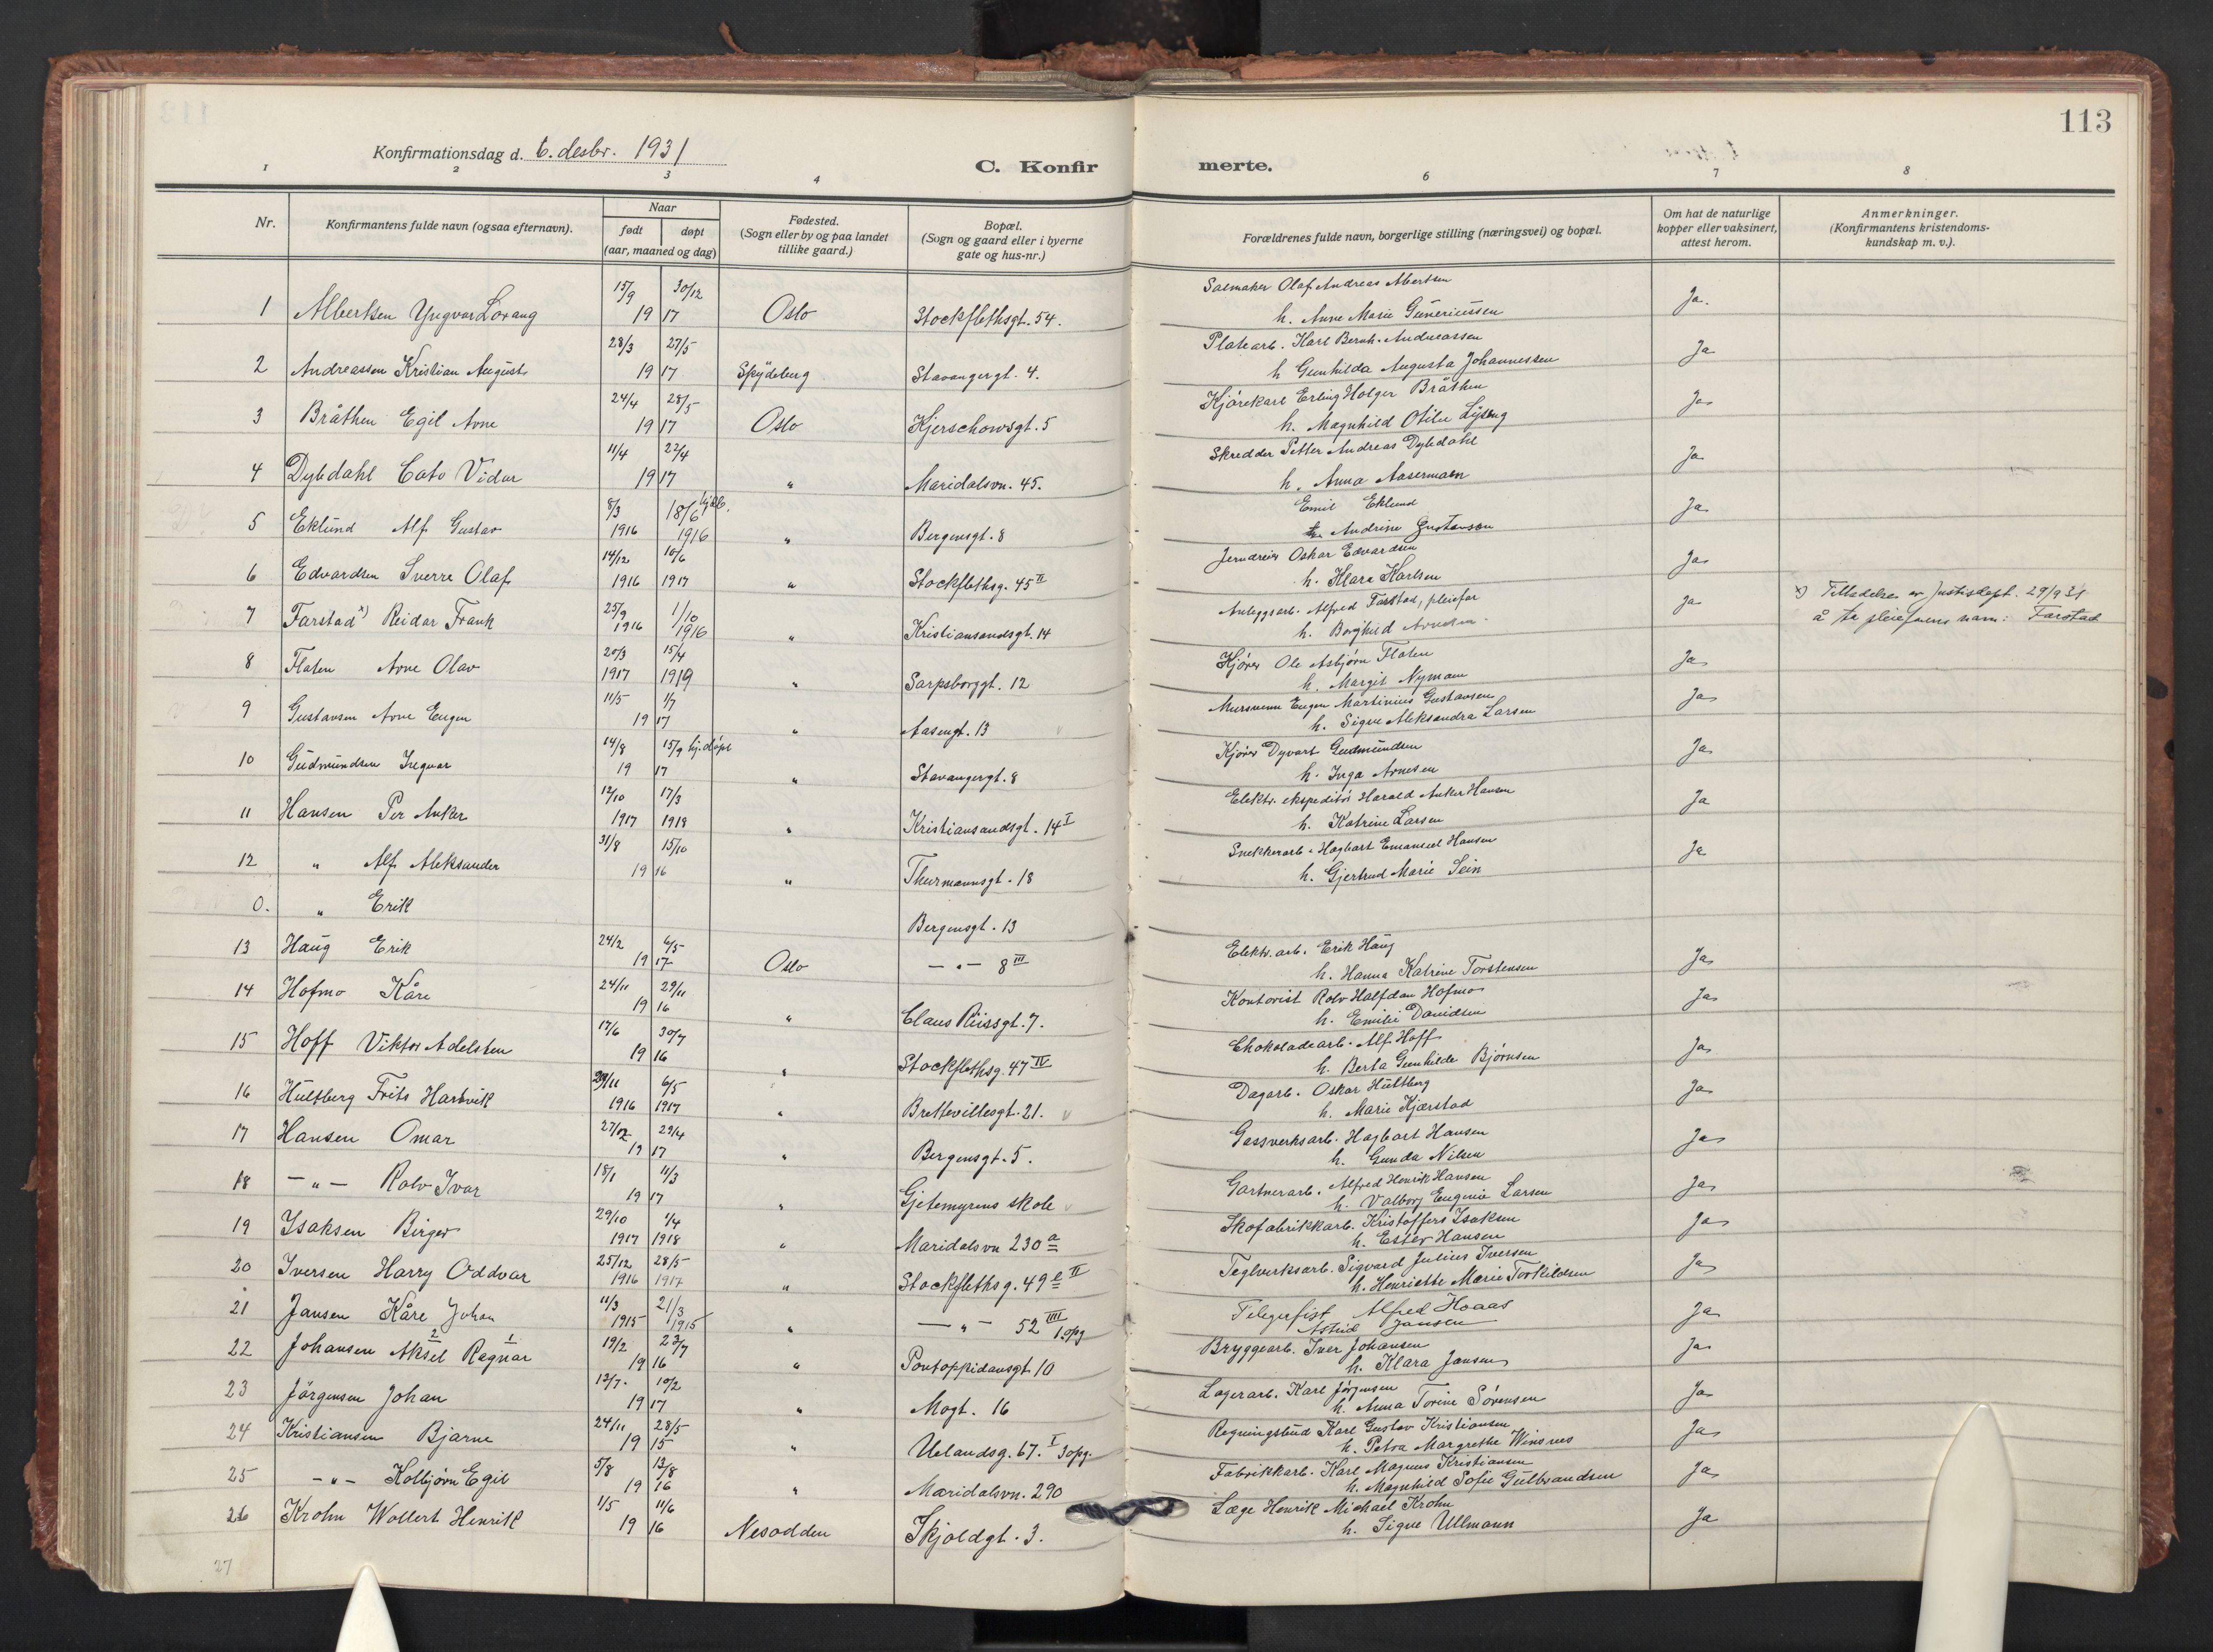 113
Konfirmationsdag d. 6. desbr. 1931
C. Konfirmerte.
1 2 3 4 6 7 8
Nr. | Konfirmantens fulde navn (ogsaa efternavn). | Naar født døpt (aar, maaned og dag) | Fødested. (Sogn eller by og paa landet tillike gaard.) | Bopæl. (Sogn og gaard eller i byerne gate og hus-nr.) | Forældrenes fulde navn, borgerlige stilling (næringsvei) og bopæl. | Om hat de naturlige kopper eller vaksinert, attest herom. | Anmerkninger. (Konfirmantens kristendomskundskap m. v.).
1 Albertsen Yngvar Lorang 15/9 30/12 1917 Oslo Stockflethsgt. 54. Salmaker Olaf Andreas Albertsen h. Anne Marie Gunericussen Ja.
2 Andreassen Kristian August 28/3 27/5 1917 Spydeberg Stavangergt. 4. Platearb. Karl Bernh. Andreassen h Gunhilda Augusta Johannessen Ja
3 Bråthen Egil Arne 24/4 28/5 1917 Oslo Kjerschowsgt. 5 Kjörekarl Erling Holger Bråthen h. Magnhild Otilie Lyseng Ja
4 Dybdahl Cato Vidar 11/4 22/4 1917 " Maridalsvn. 45. Skredder Petter Andreas Dybdahl h. Anna Aasermann Ja
5 Eklund Alf Gustav 8/3 1916 18/6 hjdb. 1916 " Bergensgt. 8 Emil Eklund Andrine Gustavson Ja
6 Edvardsen Sverre Olaf 14/12 1916 10/6 1917 " Stockflethsg. 45 II Jerndreier Oskar Edvardsen h. Klara Karlsen Ja
7 Farstad x) Reidar Frank 25/9 1916 1/10 1916 " Kristiansandsgt. 14 Anleggsarb. Alfred Farstad, pleiefar h. Borghild Ja x) Tilladelse av Justisdept. 29/9 31 å ta pleiefarens navn: Farstad
8 Flaten Arne Olav 20/3 1917 15/4 1919 " Sarpsborggt. 12 Kjører Ole Asbjørn Flaten h. Margit Nyman Ja
9 Gustavsen Arne Eugen 11/5 1/7 1917 " Aasengt. 13 Mursvenn Eugen Martinius Gustavsen h. Signe Aleksandra Larsen Ja
10 Gudmundsen Ingvar 14/8 15/9 hj.døpt 1917 " Stavangergt. 8 Kjører Dyvart Gudmundsen h. Inga Arnesen Ja
11 Hansen Per Anker 12/10 1917 17/3 1918 " Kristiansandsgt. 14 I Elektr. ekspeditør Harald Anker Hansen h. Katrine Larsen Ja
12 " Alf Aleksander 31/8 15/10 1916 " Thurmannsgt. 18 Snekkerarb. Hagbart Emanuel Hansen h. Gjertrud Marie Sein Ja
0. " Erik Bergensgt. 13
13 Haug Erik 24/2 6/5 1917 Oslo — " — 8 III Elektr. arb. Erik Haug h. Hanna Katrine Torstensen Ja
14 Hofmo Kåre 24/11 29/11 1916 " Claus Riisgt. 7. Kontorist Rolv Halfdan Hofmo h. Emilie Davidsen Ja
15 Hoff Viktor Adelsten 17/6 30/7 1916 " Stockflethsg. 47 IV Chokoladearb. Alf Hoff h. Berta Gunhilde Bjørnsen Ja
16 Hultberg Frits Hartvik 29/11 1916 6/5 1917 " Brettevillesgt. 21. Dagarb. Oskar Hultberg h. Marie Kjærstad Ja
17 Hansen Omar 27/2 29/4 1917 " Bergensgt. 5. Gassverksarb. Hagbart Hansen h. Gunda Nilsen Ja
18 — " — Rolv Ivar 18/1 11/3 1917 " Gjetemyrens skole Gartnerarb. Alfred Henrik Hansen h. Valborg Eugenie Larsen Ja
19 Isaksen Birger 29/10 1917 1/4 1918 " Maridalsvn 230 a Skofabrikkarb. Kristoffers Isaksen h. Ester Hansen Ja
20 Iversen Harry Oddvar 25/12 1916 28/5 1917 " Stockflethsg. 49 e II Teglverksarb. Sigvard Julius Iversen h. Henriette Marie Torkildsen Ja
21 Jansen Kåre Johan 11/3 1915 21/3 1915 " — " — 52 III 1.opg Telegrafist Alfred Hoaas Astrid Jansen Ja
22 Johansen Aksel 2 Ragnar 1 19/2 23/7 1916 " Pontoppidansgt 10 Bryggearb. Iver Johansen h. Klara Jansen Ja
23 Jörgensen Johan 12/7. 10/2 1917 " Mogt. 16 Lagerarb. Karl Jørgensen h. Anna Torine Sørensen Ja
24 Kristiansen Bjarne 24/11 28/5 1915 " Uelandsg. 67. I 3opg. Regningsbud Karl Gustav Kristiansen h. Petra Margrethe Winsnes Ja
25 — " — Kolbjørn Egil 5/8 13/8 1916 " Maridalsvn. 290 Fabrikkarb. Karl Magnus Kristiansen h. Magnhild Sofie Gulbrandsen Ja
26 Krohn Wollert Henrik 1/5 11/6 1916 Nesodden Skjoldgt. 3. Læge Henrik Michael Krohn h. Signe Ullmann Ja
27